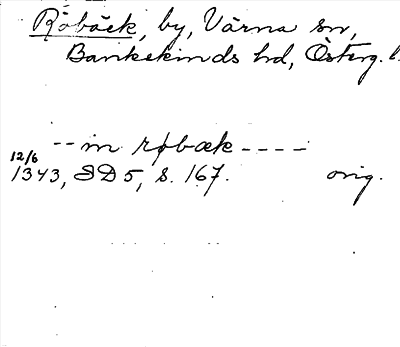 Röbäck, by, Värna sn,
Bankekinds hd, Österg. l.
-- in røbæk ----
12/6
1343, SD 5, s. 167. orig.